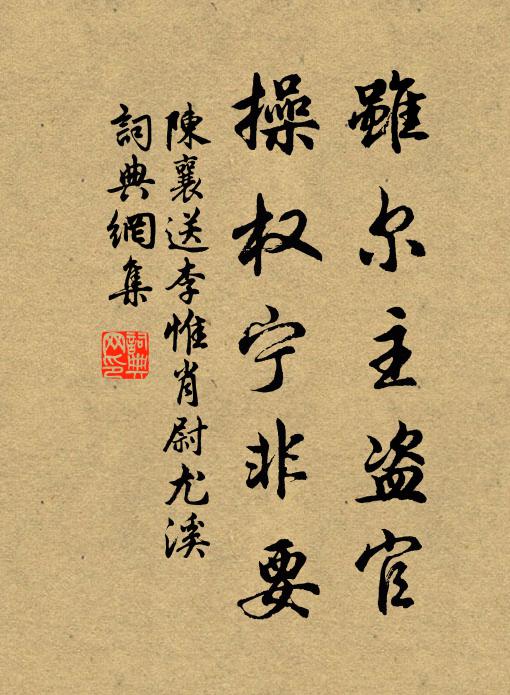 雖尔主盗官
操权宁非要
陳襄送李惟肖尉尤溪
詞典網集
詞典网印